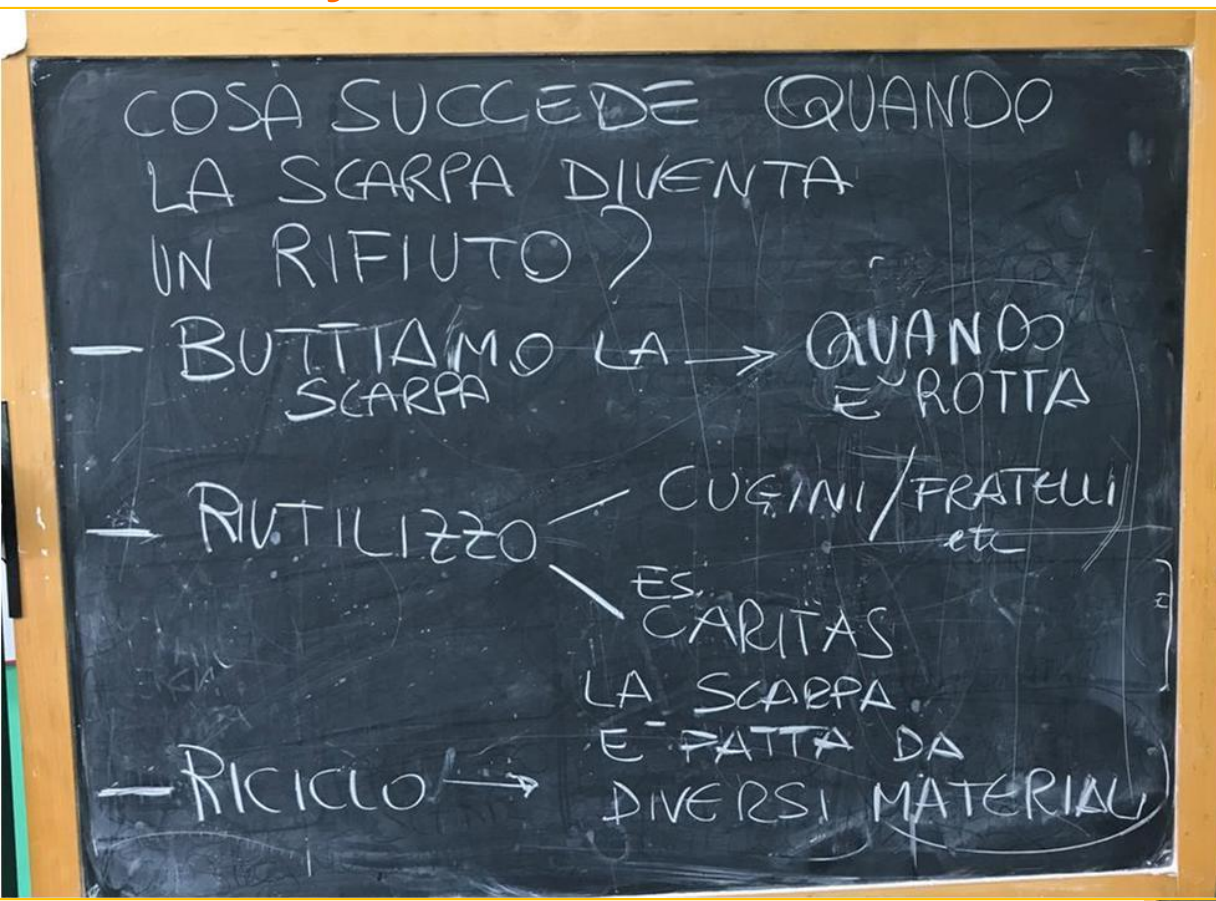 COSA SUCCEDE QUANDO
LA SCARPA DIVENTA
UN RIFIUTO?
— BUTTIAMO LA → QUANDO
SCARPA E' ROTTA
— RIUTILIZZO
CUGINI/FRATELLI
etc
ES.
CARITAS
— RICICLO →
LA SCARPA
E' FATTA DA
DIVERSI MATERIALI